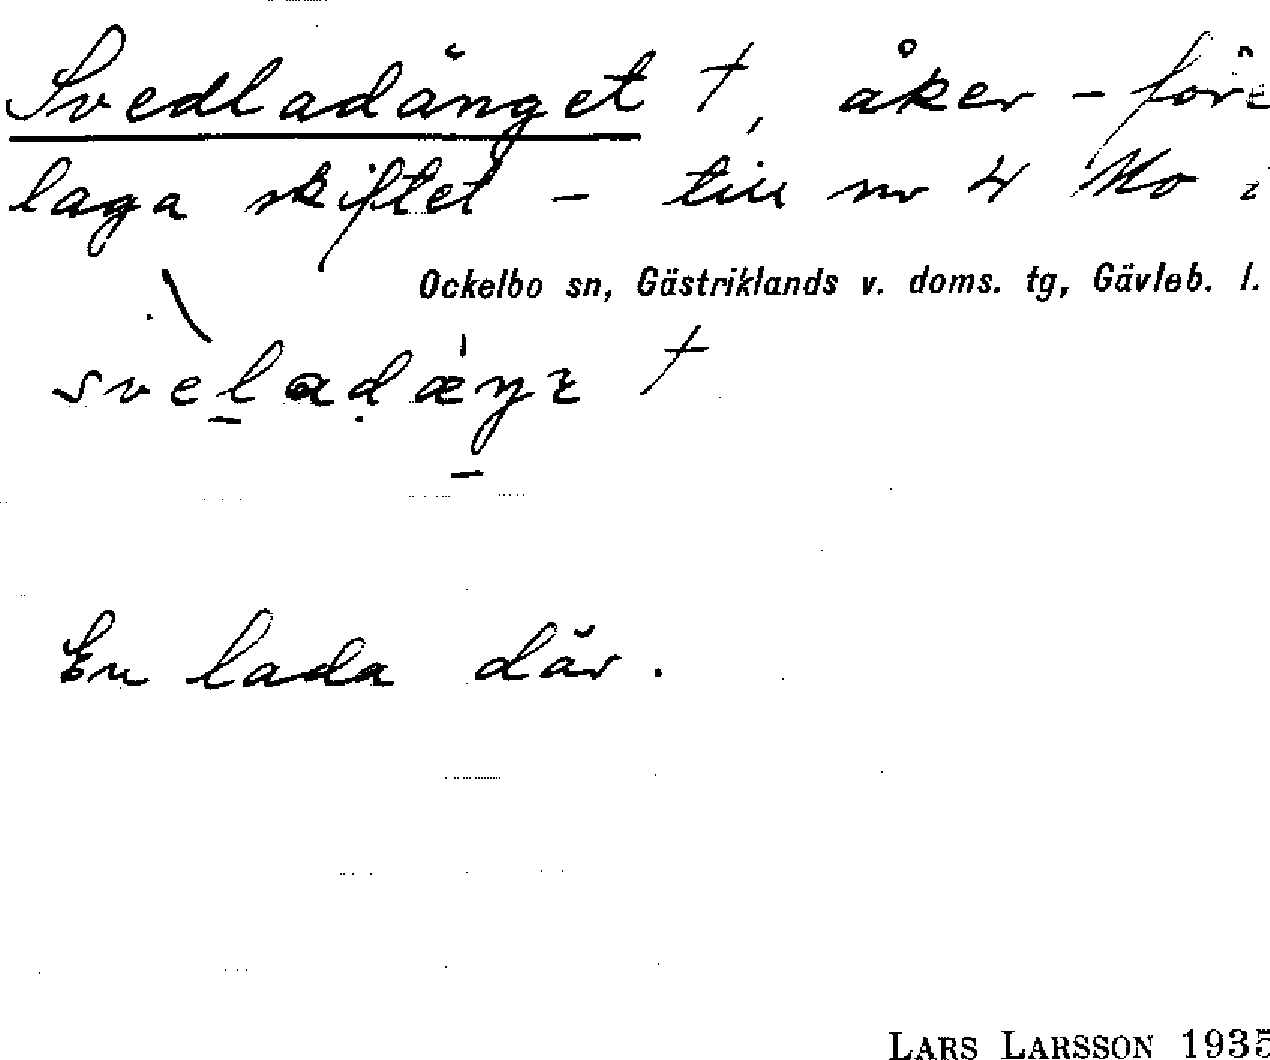 Svedladänget †, åker - före
laga skiftet - till nr 4 Mo i
Ockelbo sn, Gästriklands v. doms. tg, Gävleb. l.
sveladæŋɛ †
En lada där.
LARS LARSSON 1935